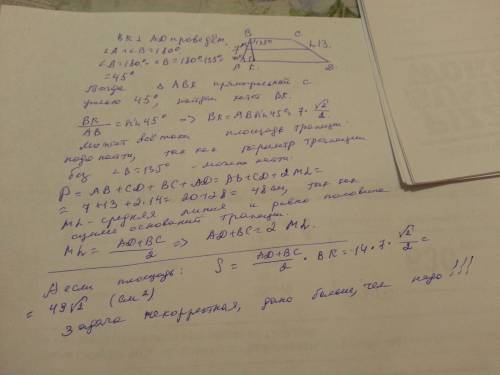 BK ⊥ AD проведём.
B C
∠A+∠B=180°
135°
L 13.
∠A=180°-∠B=180°-135°
A K D
=45°
Тогда △ ABK прямоугольный с
углом 45°, найти катет BK.
BK/AB = sin 45° => BK = AB sin 45° = 7·√2/2
Может всё таки площадь трапеции
надо найти, так как периметр трапеции
без ∠B=135° - можно найти.
P = AB+CD+BC+AD = AB+CD+2ML=
= 7+13+2·14 = 20+28 = 48 см, так как
ML - средняя линия и равна половине
сумме оснований трапеции.
ML = (AD+BC)/2 => AD+BC = 2 ML.
А если площадь: S = (AD+BC)/2 · BK = 14·7·√2/2 =
= 49√2 (см²)
Задача некорректная, дано больше, чем надо!!!